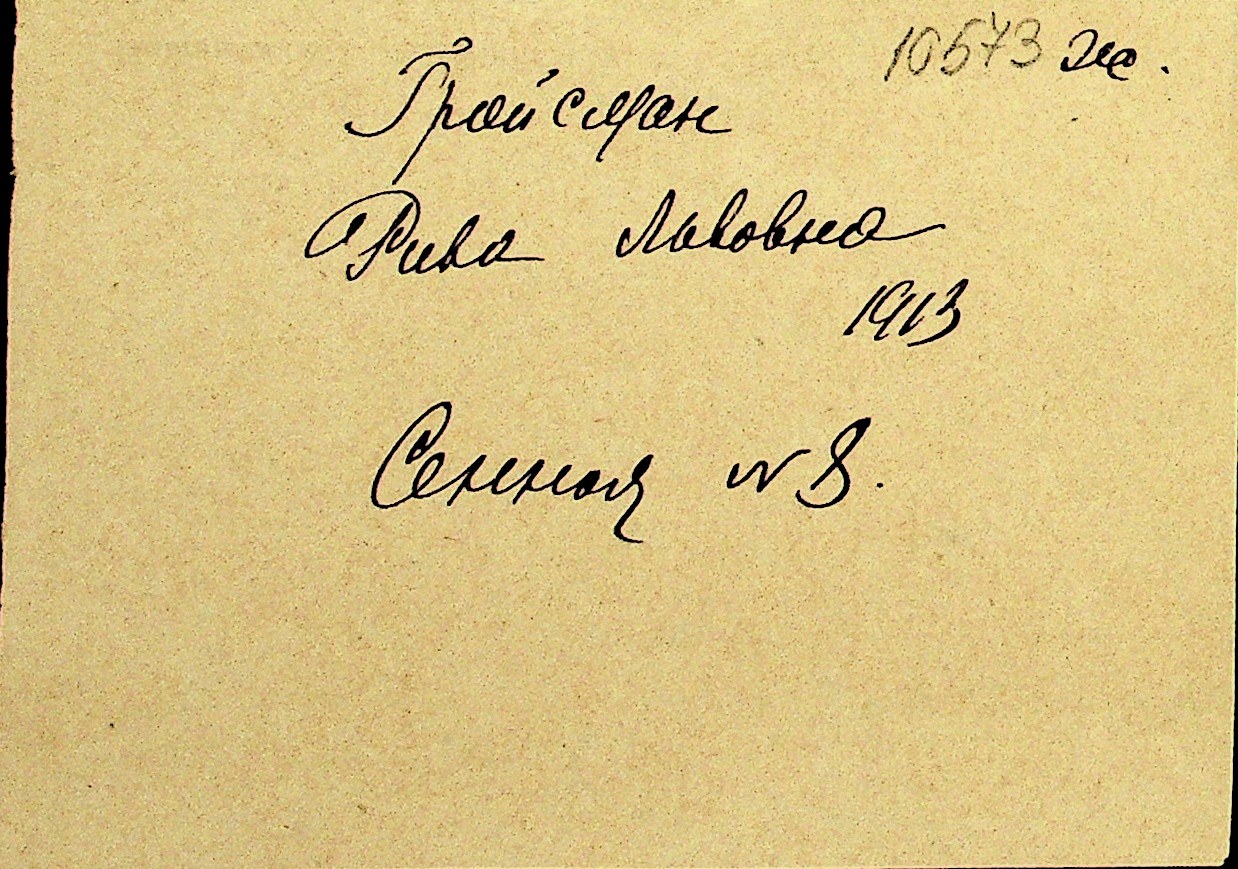 10573 же.
Гройсман
Рива Львовна
1913
Сенная № 8.